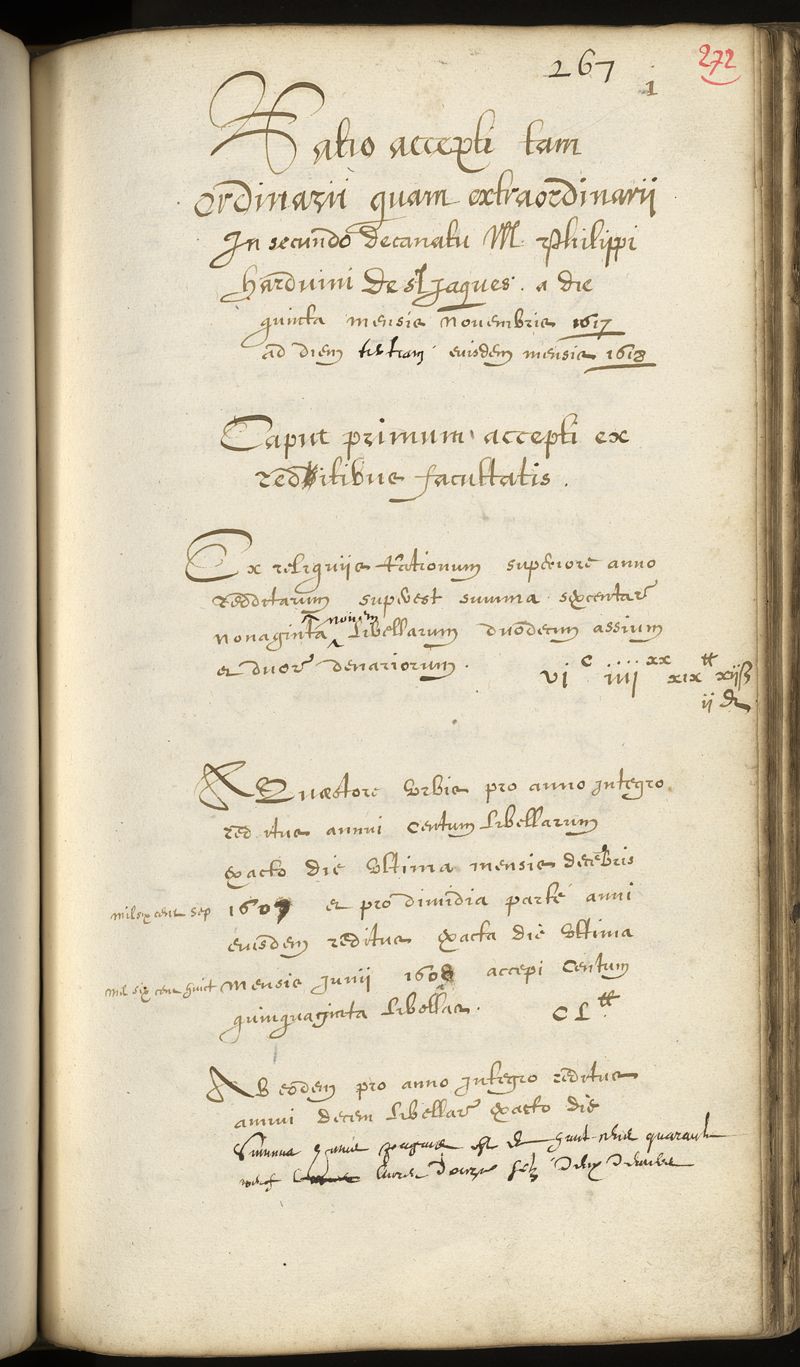 267
272
1
Ratio accepti tam
ordinarii quam extraordinarii
In secundo decanatu M. Philippi
Harduini De St Jaques. a die
quinta mensis Novembris 1617
ad diem tertiam eiusdem mensis 1618
Caput primum accepti ex
redditibus facultatis.
Ex reliquiis rationum superiore anno
redditarum superest summa sexcentar
nonaginta novem libellarum duodecim assium
et duor denariorum.
vi c iiii xx xix tt xii ß
ii d
A Quæstore Urbis pro anno integro
reditus annui centum libellarum
exacto die ultima mensis decēbris
mil six cent sep 1607 et pro dimidia parte anni
eiusdem reditus exacta die ultima
mil six cent huict mensis Junii 1608 accepi centum
quinquaginta libellas. CL tt
Ab eodem pro anno integro reditus
annui decem libellar exacto die
Summa paginæ est huit cens quarante
neuf livres douze solz deux deniers